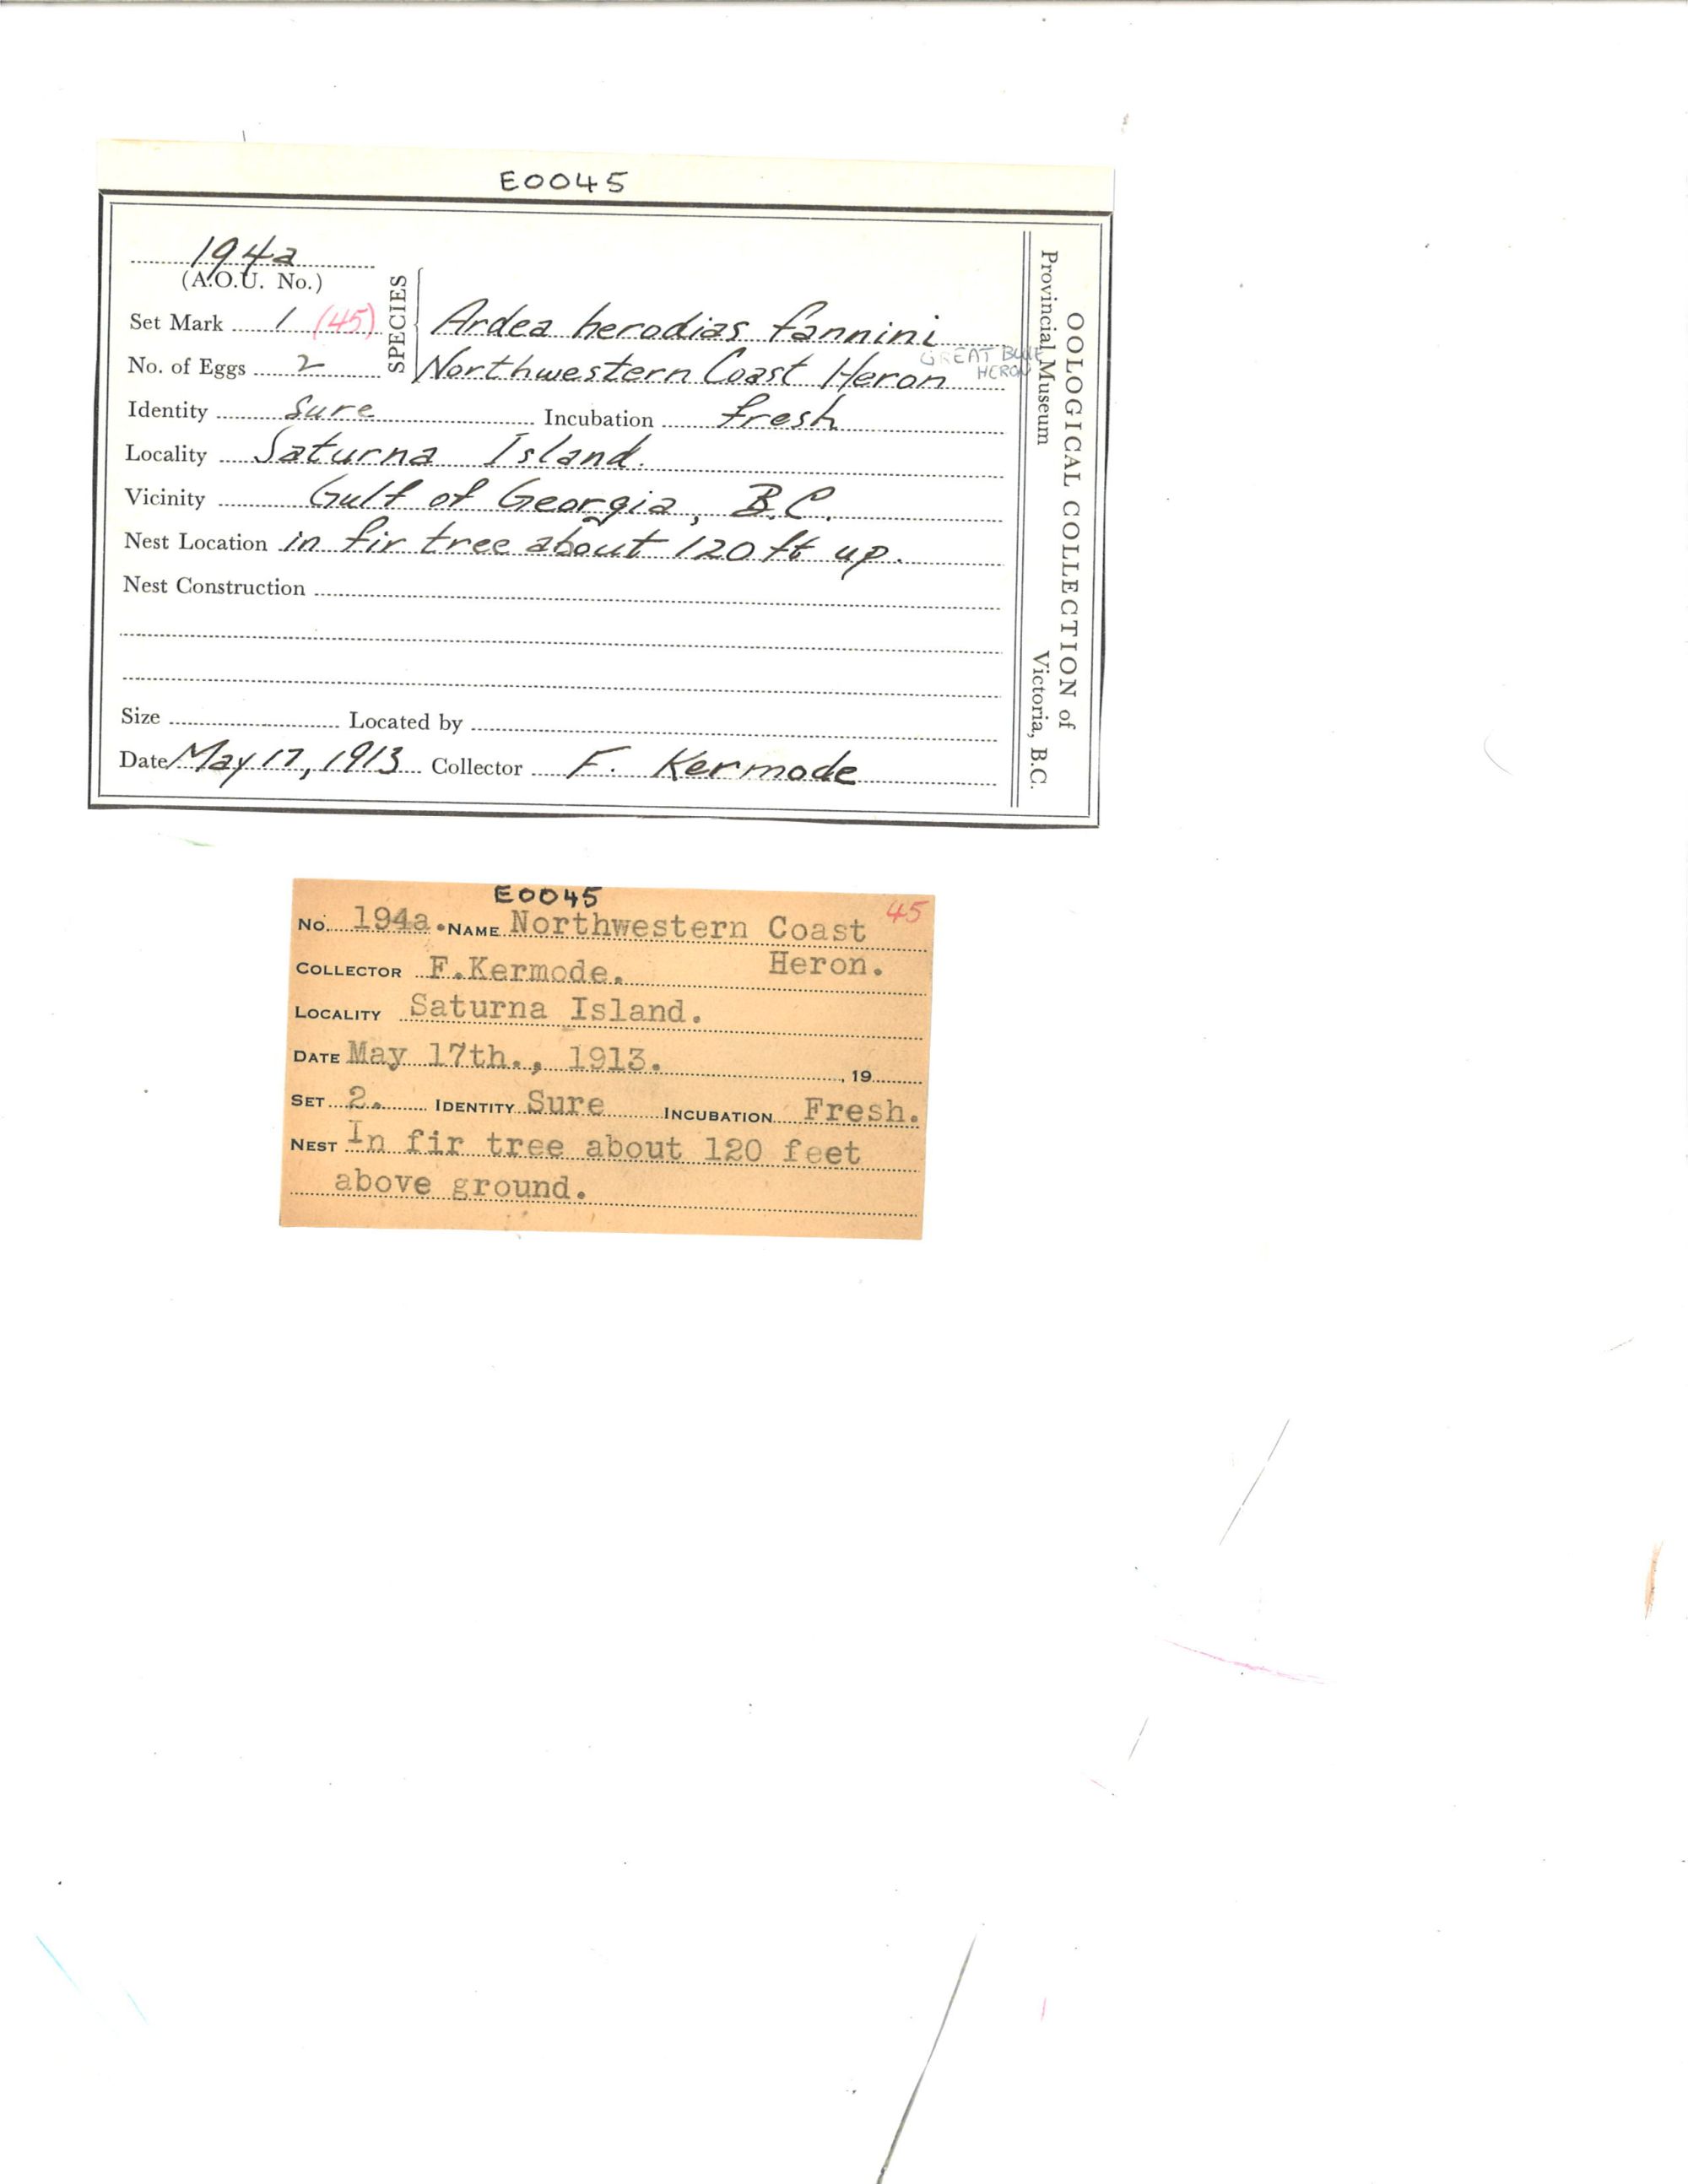 E0045
194a
(A.O.U. No.)
Set Mark 1 (45)
No. of Eggs 2
SPECIES
Ardea herodias fannini
Northwestern Coast Heron
GREAT BLUE
HERON
Identity Sure Incubation fresh
Locality Saturna Island.
Vicinity Gulf of Georgia, B.C.
Nest Location in fir tree about 120 ft up.
Nest Construction
Size Located by
Date May 17, 1913 Collector F. Kermode
OOLOGICAL COLLECTION of
Provincial Museum Victoria, B.C.
E0045
45
No. 194a. NAME Northwestern Coast
Heron.
COLLECTOR F.Kermode.
LOCALITY Saturna Island.
DATE May 17th., 1913. , 19
SET 2. IDENTITY Sure INCUBATION Fresh.
NEST In fir tree about 120 feet
above ground.